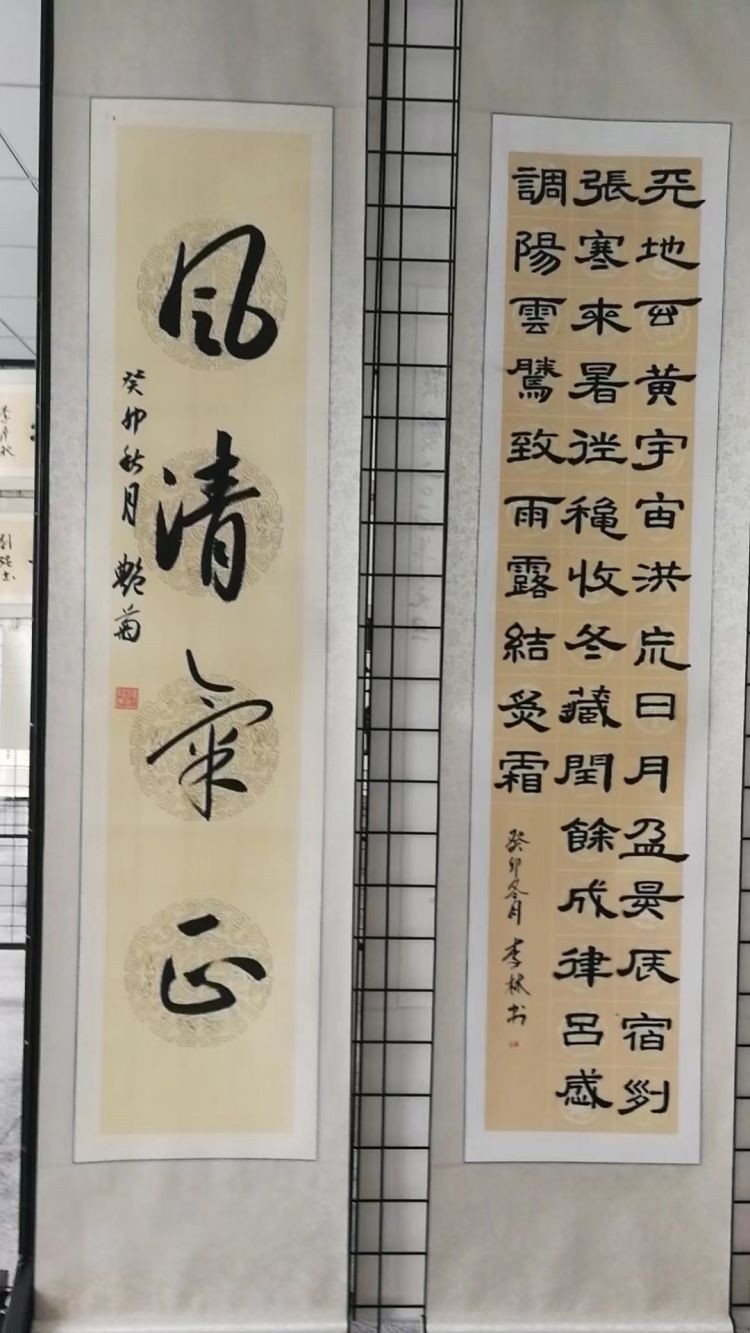 天地玄黃宇宙洪荒日月盈昃辰宿列
張寒來暑往穐收冬藏閏餘成律呂歲
調陽雲騰致雨露結為霜
癸卯冬月 李林书
風清氣正
癸卯秋月 艷菊